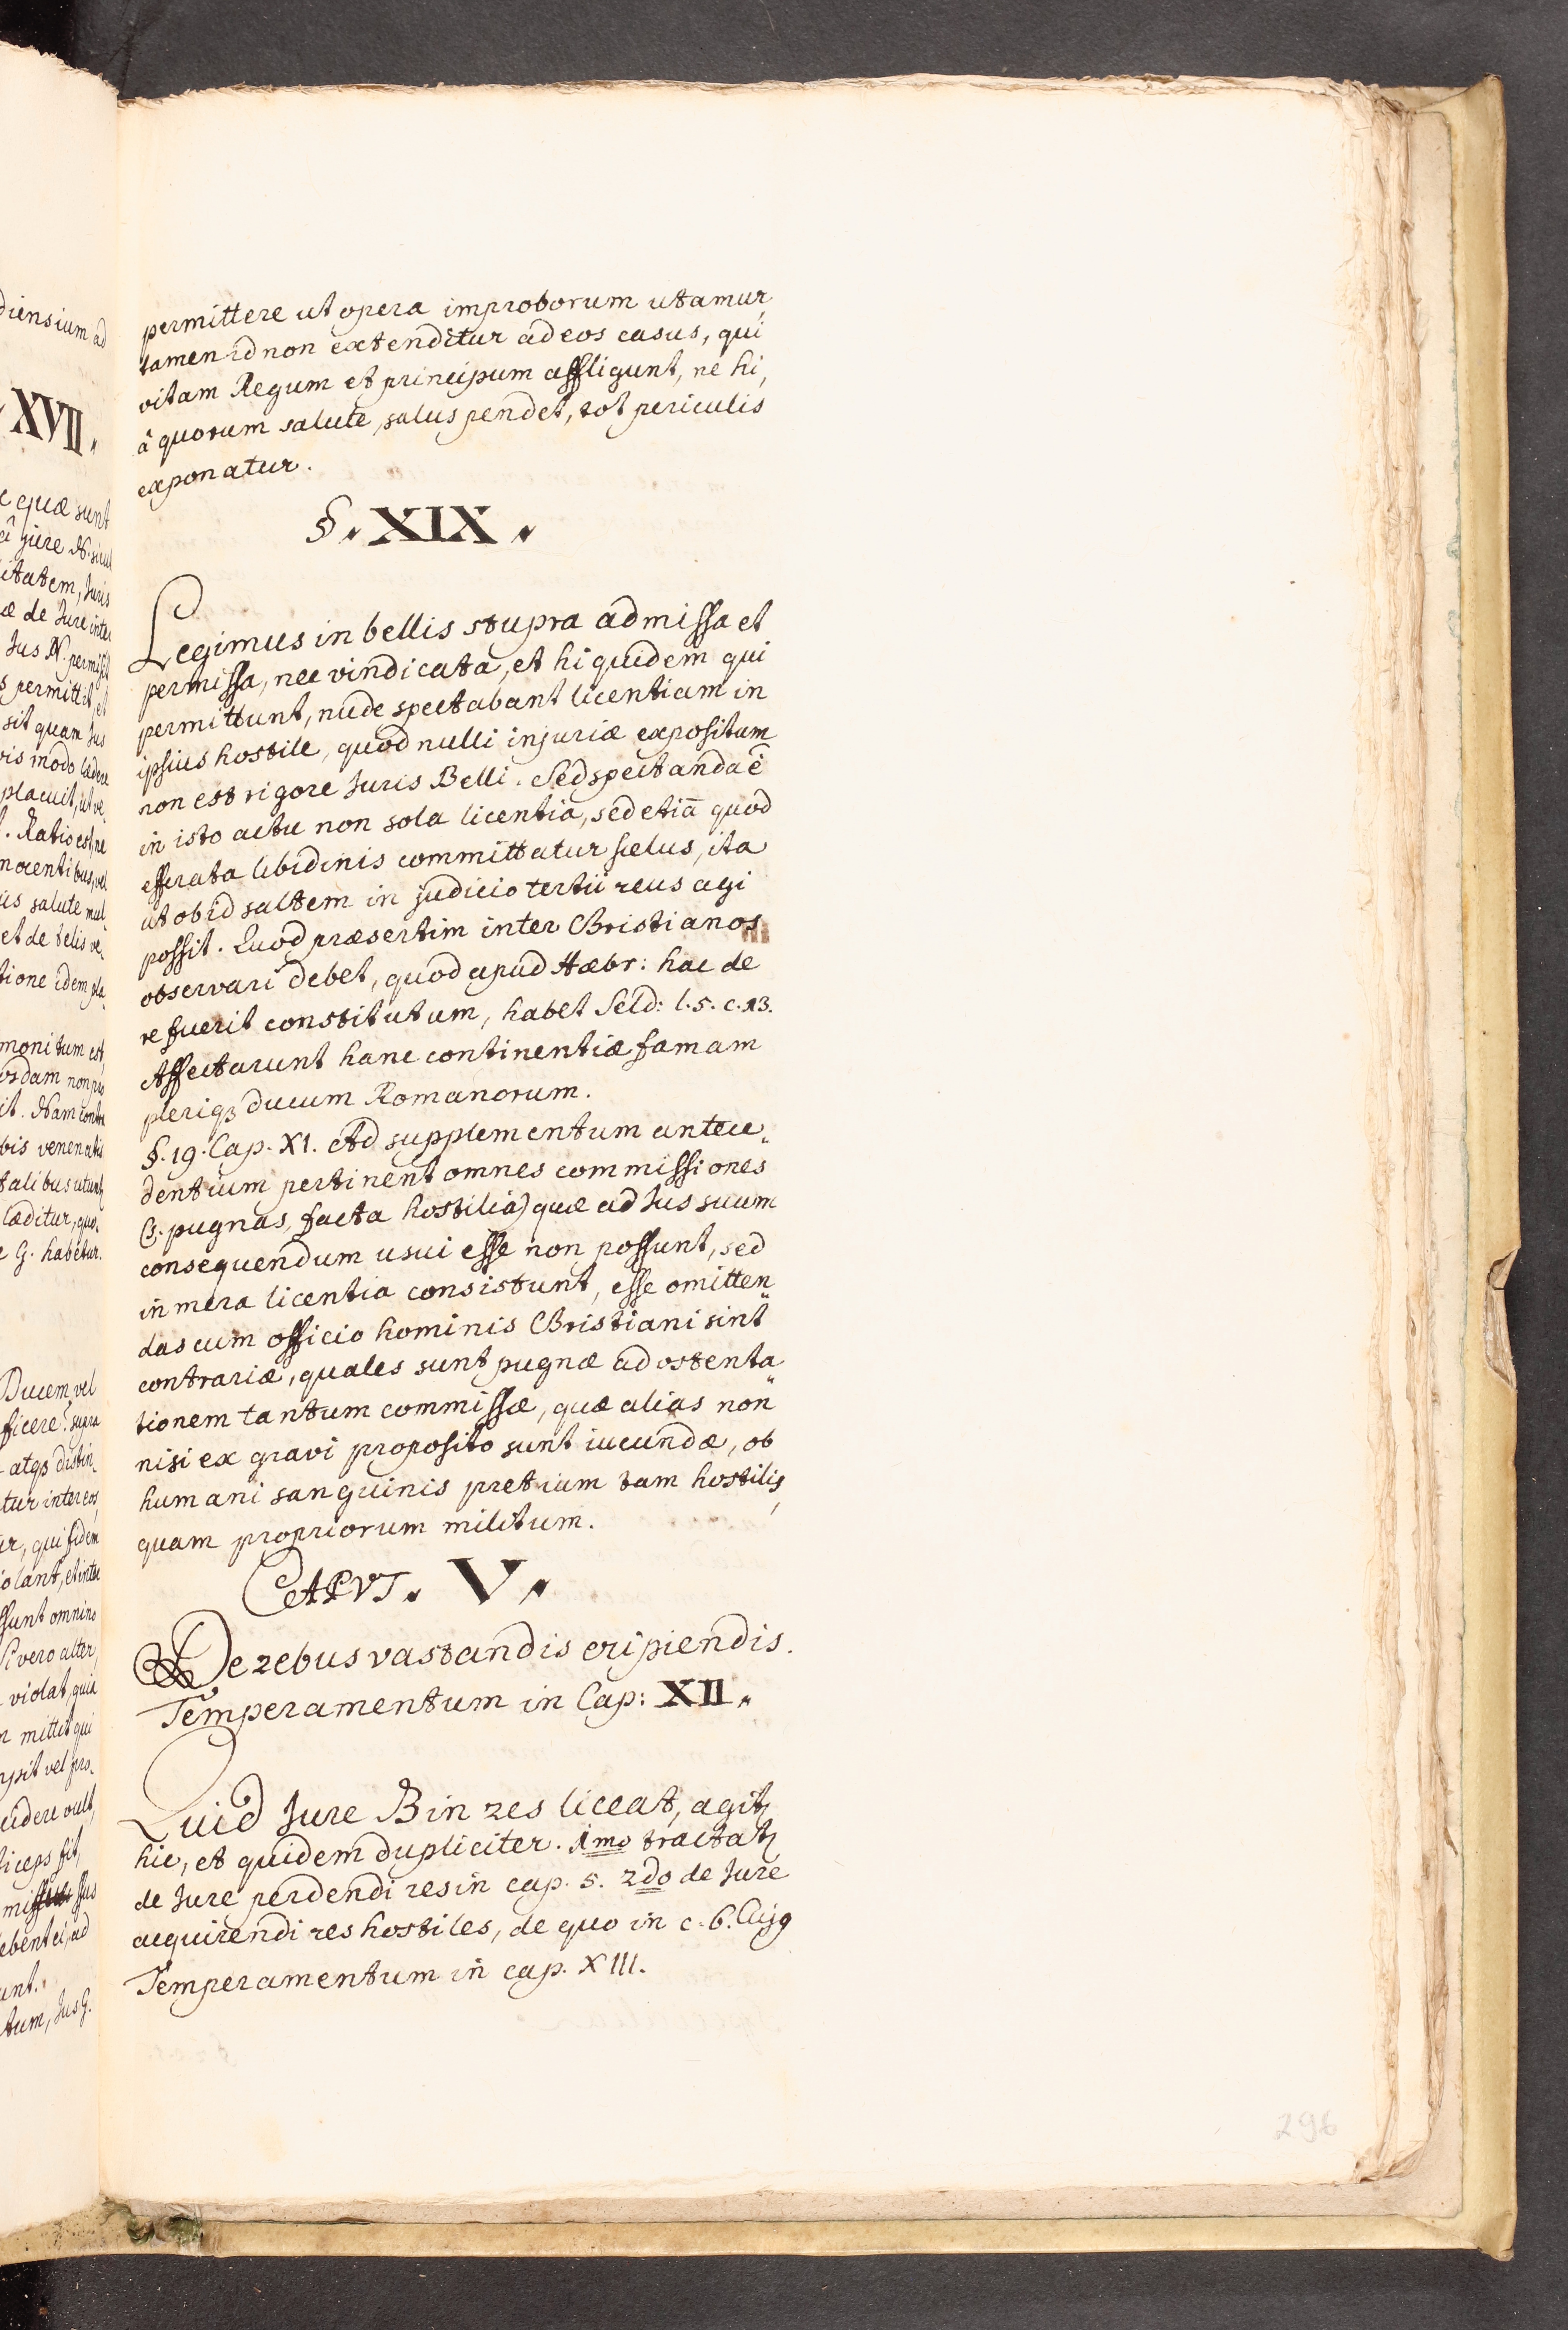 permittere ut opera improborum utamur,
tamen id non extenditur ad eos casus, qui
vitam Regum et principum affligunt, ne hi,
â quorum salute, salus pendet, tot periculis
exponatur.
§. XIX.
Legimus in bellis stupra admissa et
permissa, nec vindicata, et hi quidem qui
permittunt, nude spectabant licentiam in
ipsius hostile, quod nulli injuriæ expositum
non est rigore Juris Belli. Sed spectanda ê
in isto actu non sola licentia, sed etiā quod
efferata libidinis committatur scelus, ita
ut ob id saltem in judicio tertii reus agi
possit. Quod præsertim inter Christianos
observari debet, quod apud Hæbr: hac de
re fuerit constitutum, habet Seld: l.5. c.13.
Affectarunt hanc continentiæ famam
pleriqȝ ducum Romanorum.
§.19. Cap. XI. Ad supplementum antece„
dentium pertinent omnes commissiones
(ȝ. pugnas, facta hostilia) quæ ad Jus suum
consequendum usui esse non possunt, sed
in mera licentia consistunt, esse omitten„
das cum officio hominis Christiani sint
contrariæ, quales sunt pugnæ ad ostenta„
tionem tantum commissæ, quæ alias non
nisi ex gravi proposito sunt iucundæ, ob
humani sanguinis pretium tam hostilis,
quam propriorum militum.
CAPVT. V.
De rebus vastandis eripiendis.
Temperamentum in Cap: XII.
Quid Jure B in res liceat, agitꝛ
hic, et quidem dupliciter. 1mo tractatꝛ
de Jure perdendi res in cap. 5. 2do de Jure
acquirendi res hostiles, de quo in c. 6. Cujꝯ
Temperamentum in cap. XIII.
296
diensium ad
XVII.
quæ sunt
â jure N. sicut
itatem, Juris
æ de Jure inter
Jus N. permisit
permittit, et
sit quam Jus
vis modo lædere
placuit, ut ve„
. Ratio est, ne
nocentibus, vel
is salute mul„
et de telis ve„
tione idem pla„
monitum est,
it. Nam contra
bis venenatis
talibus utuntꝛ
læditur, quo„
G. habetur.
Ducem vel
ficere? supra
atqȝ distin„
tur inter eos,
, qui fidem
olant, et inter
sunt omnino
Si vero alter,
violat, quia
mittit qui
sit vel pro„
cidere vult,
iceps sit,
ebent ei, ad
unt.
tum, Jus G.